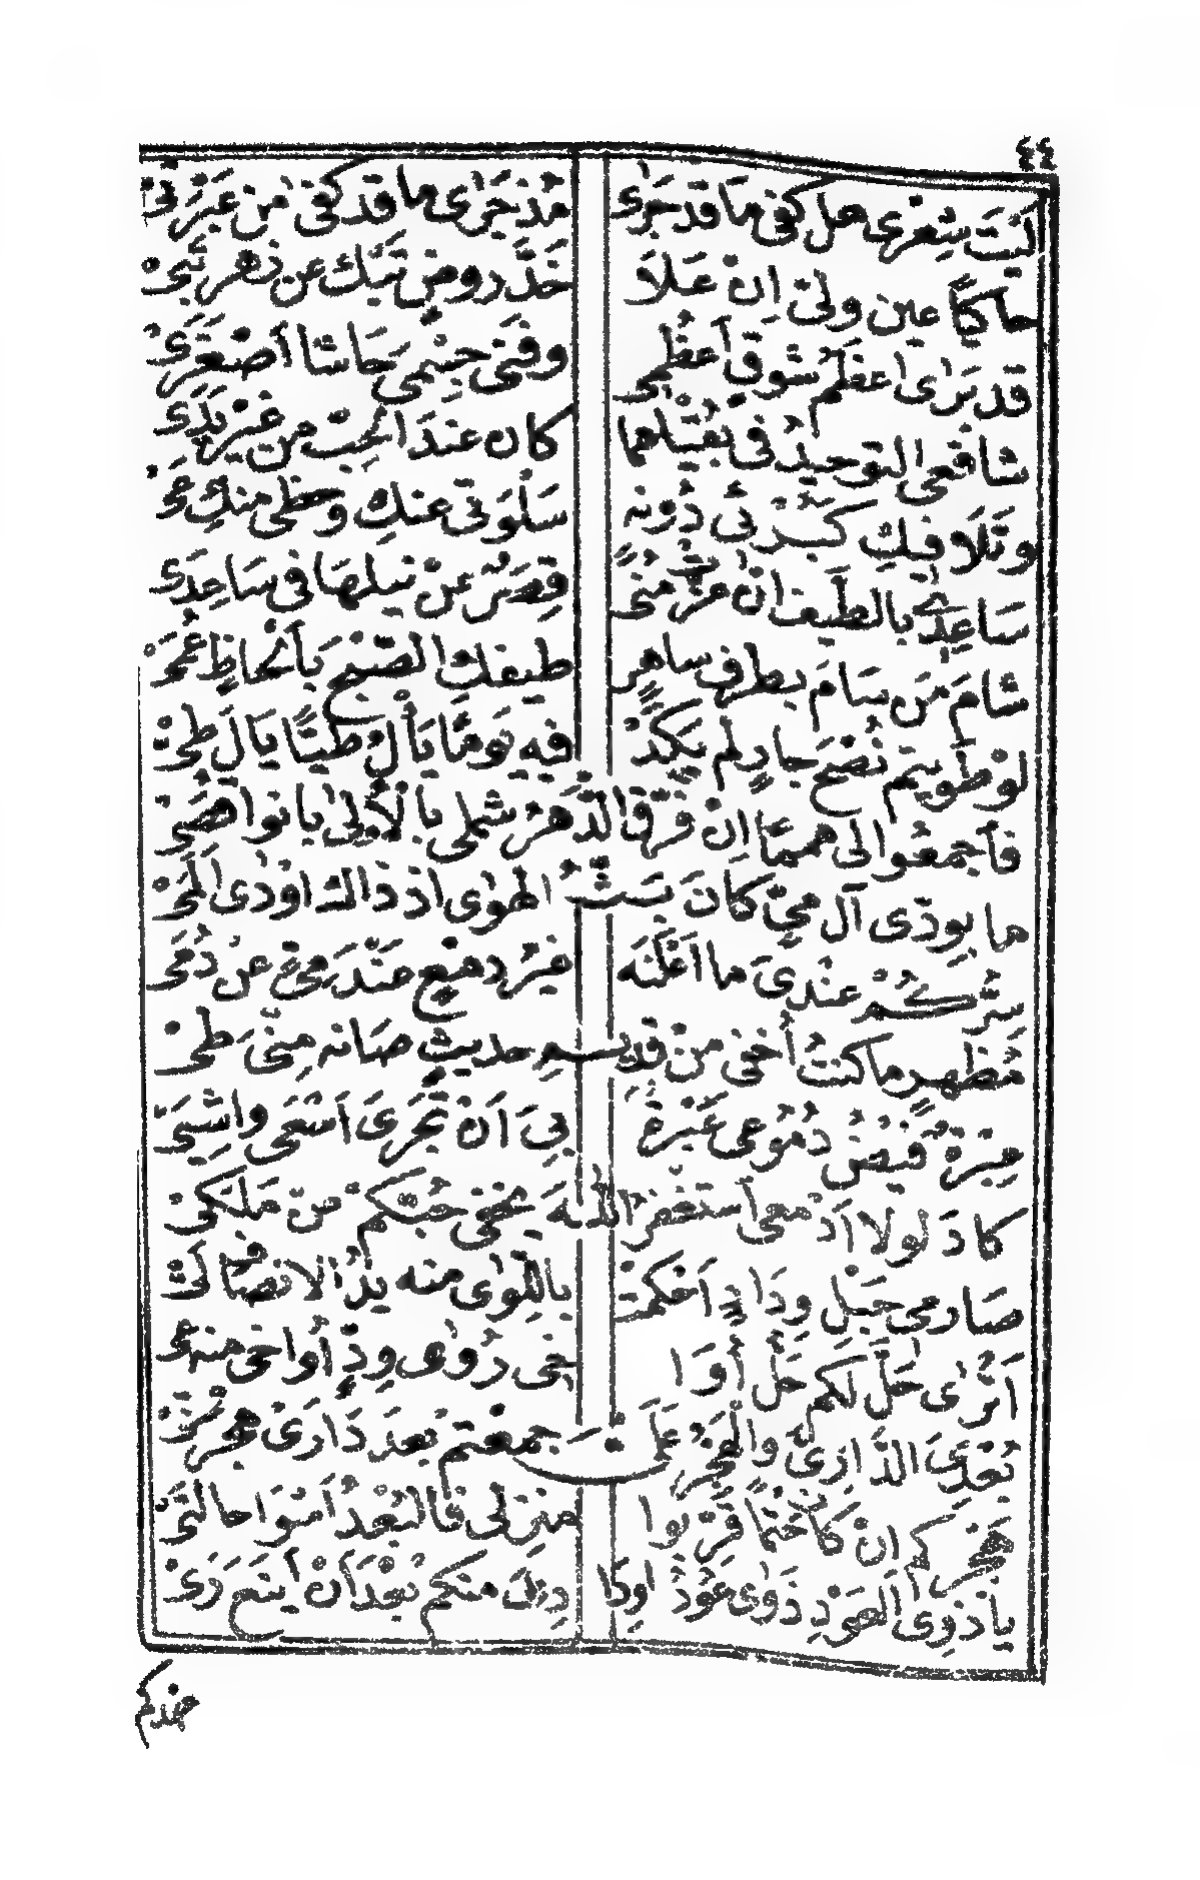 ٤٤
لَيْتَ شِعْرِى هل كفى مَا قد جَرٰى مُذْ جَرٰى ما قد كفى من عَبْرَتِىْ
حاكيًا عين ولىّ اِنْ عَلاَ خَدَّ روضٍ تبكِ عن زهرٍ تُبِىْ
قد بَرٰى اعظمَ شوقٍ أعظُمِى وفَنِى جِسْمِى حَاشَا أصْغَرَىْ
شافعى التوحيدُ فى بُقْيَاهما كان عندَ الحبِّ من غيْر يَدَىْ
وتَلَافيكِ كَبُرْئى دُونه سَلْوَتى عنكِ وحظى منكِ عَىْ
سَاعِدِىْ بالطَّيف انْ عزّت منًى قِصَرٌ عن نيلها فى سَاعِدَىْ
شامَ من سامَ بطرفٍ ساهرٍ طيفكِ الصّبحَ بأَلحاظٍ عُمَىْ
لوْ طَوَيتم نُصْحَ جارٍ لم يَكُنْ فيه يَومًا يَأْلُ طَيًّا يَالَ طَىْ
فأجمعُوا لى همماً اِنْ فرّقَ الدّهرُ شملى بالْأُولى بانوا قُصَىْ
ما بِوُدّى آل مىٍّ كانَ بَثُّ الهوٰى اذ ذاك اودٰى اَلَمَىْ
سِرُّكُمْ عنْدِىَ ما اَعْلَنَه غيرُ دمعٍ عَنْدَمِىٍّ عن دُمَىْ
مُظهرٍ ما كنتُ أخفى منْ قديم حديثٍ صَانه مِنّىَ طَىْ
عِبرةٌ فَيْضُ دُمُوعى عَبْرَةً بِىَ اَنْ تَجْرِىَ اَسْعَى واشِيَىْ
كادَ لولا اَدْمعى استغفرُ اللهَ يَخفٰى حُبّكم عن مَلَكَىْ
صَارمى حَبْلِ ودَادٍ اَحْكَمَتْ باللِّوٰى منه يدُ الانصافِ لَىْ
اَتُرٰى حَلَّ لَكم حَلُّ أَوَا خِى رُوٰى وُدٍّ أُواخى منه عَىْ
بُعْدِىَ الدَّارِىَّ والْهَجْرُ عَلَىَّ جمعتم بَعدَ دَارَىْ هجرَتَىْ
هَجْرُكم انْ كانَ حَتْمًا قَرّبوا منزلى فالبُعْدُ اَسْوَا حَالَتَىْ
يا ذوى الْعَوْدِ ذَوٰى عُوْدُ وِدَا دِىَ منكم بَعْدَ أنْ اَينعَ ذَىْ
عهدكم